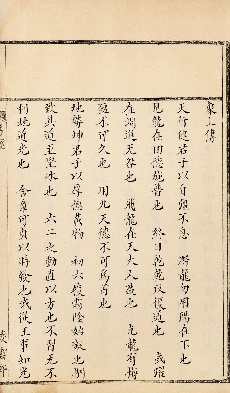 象上傳
天行健君子以自強不息　潛龍勿用陽在下也
見龍在田德施普也　終日乾乾反復道也　或躍
在淵進无咎也　飛龍在天大人造也　亢龍有悔
盈不可久也　用九天德不可爲首也
地勢坤君子以厚德載物　初六履霜陰始凝也馴
致其道至堅冰也　六二之動直以方也不習无不
利地道光也　含章可貞以時發也或從王事知光